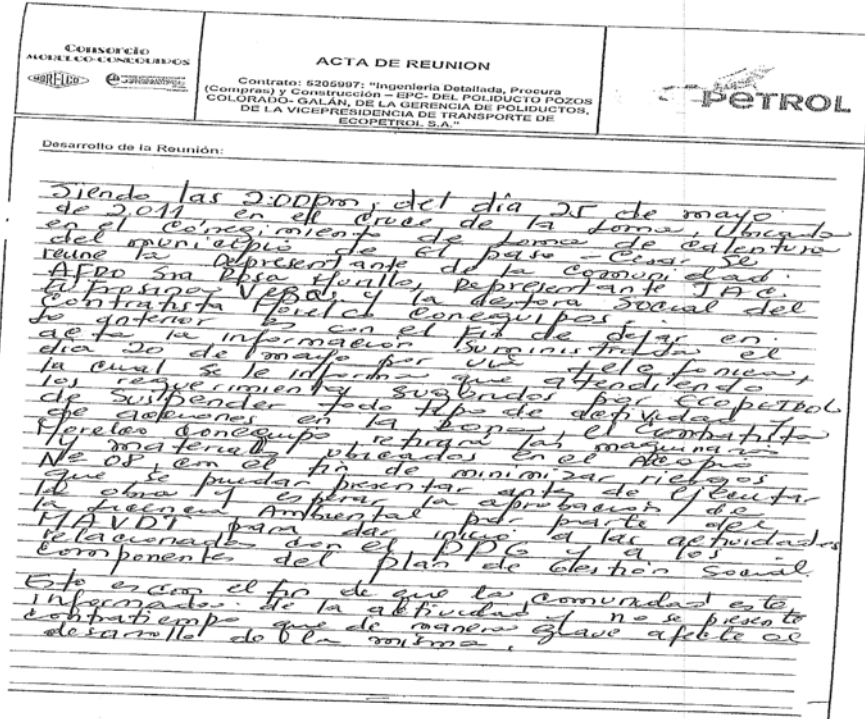 Consorcio
MORELCO-CONEQUIPOS
MORELCO
ACTA DE REUNION
Contrato: 5205997: "Ingeniería Detallada, Procura
(Compras) y Construcción – EPC- DEL POLIDUCTO POZOS
COLORADO- GALÁN, DE LA GERENCIA DE POLIDUCTOS,
DE LA VICEPRESIDENCIA DE TRANSPORTE DE
ECOPETROL S.A."
PETROL
Desarrollo de la Reunión:
Siendo las 2:00pm, del día 25 de mayo
de 2.011 en el cruce de la Loma, Ubicado
en el corregimiento de Loma de Calentura
del municipio de El paso - Cesar se
reune la representante de la comunidad
AFRO Sra Rosa Murillo, representante JAC.
y la gestora Social del
Contratista Morelco Conequipos.
Lo anterior es con el fin de dejar en
acta la información suministrada el
día 20 de mayo por vía telefónica,
la cual se le informa que atendiendo
los requerimientos sugeridos por ECOPETROL
de suspender todo tipo de actividad y
de acciones en la zona, el contratista
Morelco conequipo retirara las maquinarias
y materiales ubicados en el Acopio
Nº 08, con el fin de minimizar riesgos
que se puedan presentar ante de ejecutar
la obra y esperar la aprobación de
la Licencia Ambiental por parte del
MAVDT para dar inicio a las actividades
relacionadas con el PPG y a los
componentes del plan de Gestión Social.
Esto es con el fin de que la comunidad este
informados de la actividad y no se presente
contratiempo que de manera grave afecte el
desarrollo de la misma.